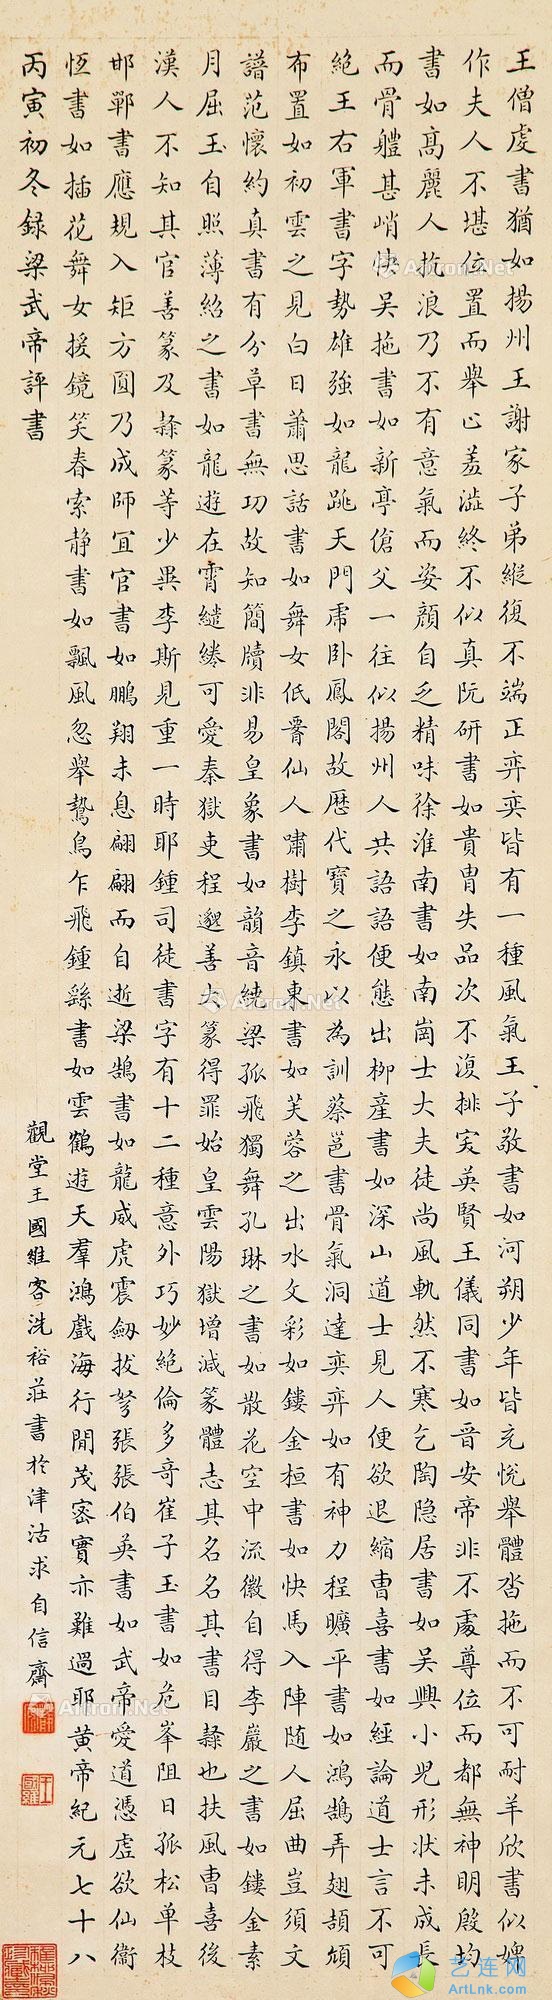 王僧虔書猶如揚州王謝家子弟縱復不端正弈弈皆有一種風氣王子敬書如河朔少年皆充悅舉體沓拖而不可耐羊欣書似婢
作夫人不堪位置而舉止羞澁終不似真阮研書如貴胄失品次不復排突英賢王儀同書如晉安帝非不處尊位而都無神明殷均
書如高麗人抗浪乃不有意氣而姿顏自乏精味徐淮南書如南崗士大夫徒尚風軌然不寒乞陶隐居書如吴興小兒形狀未成長
而骨體甚峭快吴拖書如新亭傖父一往似揚州人共語語便態出栁產書如深山道士見人便欲退縮曹喜書如經論道士言不可
絶王右軍書字勢雄強如龍跳天門虎卧鳳閣故歷代寶之永以為訓蔡邕書骨氣洞達奕弈如有神力程曠平書如鴻鵠弄翅頡頏
布置如初雲之見白日蕭思話書如舞女低腰仙人嘯樹李鎮東書如芙蓉之出水文彩如鏤金桓書如快馬入陣随人屈曲豈須文
譜范懷約真書有分草書無功故知簡牘非易皇象書如韻音繞梁孤飛獨舞孔琳之書如散花空中流徽自得李巖之書如鏤金素
月屈玉自照薄紹之書如龍遊在霄繾綣可愛秦獄吏程邈善大篆得罪始皇雲陽獄增減篆體志其名名其書目隸也扶風曹喜後
漢人不知其官善篆及隸篆等少異李斯見重一時耶鍾司徒書字有十二種意外巧妙絶倫多奇崔子玉書如危峯阻日孤松单枝
邯鄲書應規入矩方圓乃成師宜官書如鵬翔未息翩翩而自逝梁鵠書如龍威虎震劒拔弩張張伯英書如武帝愛道憑虛欲仙衞
恆書如插花舞女援鏡笑春索静書如飄風忽舉鷙鳥乍飛鍾繇書如雲鶴遊天羣鴻戲海行間茂密實亦難過耶黄帝紀元七十八
丙寅初冬録梁武帝評書
觀堂王國維客洗裕莊書於津沽求自信齋
王國維
艺连网
ArtLink.com
Artron.Net